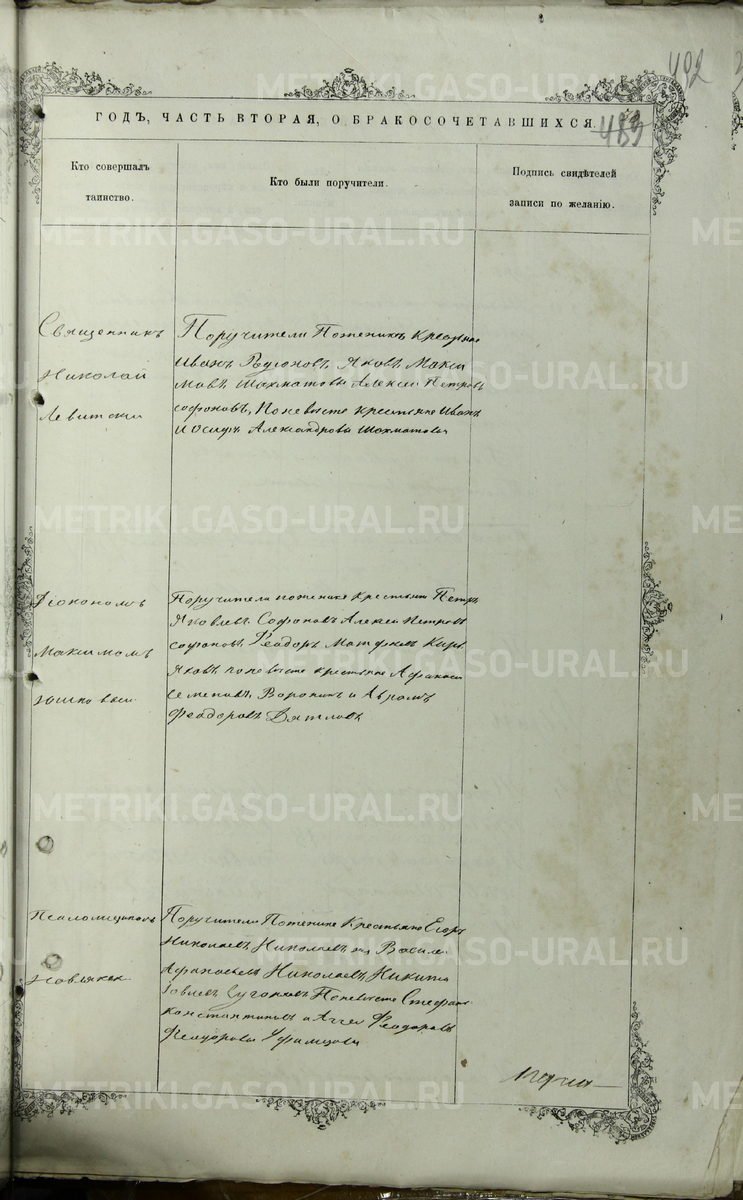 492
ГОДЪ, ЧАСТЬ ВТОРАЯ, О БРАКОСОЧЕТАВШИХСЯ.
483
Кто совершалъ
таинство.
Кто были поручители.
Подпись свидѣтелей
записи по желанію.
Священникъ
Николай
Левитскій
Поручители Поженихѣ Крестьяне
Иванъ Родіоновъ, Яковъ Макси
мовъ Шахматовы Алексѣй Петровъ
софоновъ, Поневѣсте крестьяне Иванъ
и Осипъ Александровы Шахматовы
Діакономъ
Максимомъ
Поручители поженихе Крестьяне Петръ
Яковлевъ Софоновъ Алексѣй Петровъ
софоновъ, Феодоръ Матфеевъ
поневѣсте крестьяне Афанасій
Семеновъ Воронинъ и Аврамъ
Феодоровъ Дятловъ
Псаломщикомъ
Поручители Поженихе Крестьяне Егоръ
Николаевъ Николаевъ Василей
Афанасьевъ Николаевъ Никита
Поневѣсте Стефанъ
Константиновъ и Феодоровъ
Феодоровы Уфимцовы
METRIKI.GASO-URAL.RU